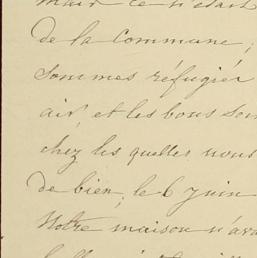 mais ce n'était
de la commune;
sommes réfugiés
air, et les bons
chez les quelles nous
de bien, le 6 juin
Notre maison n'av